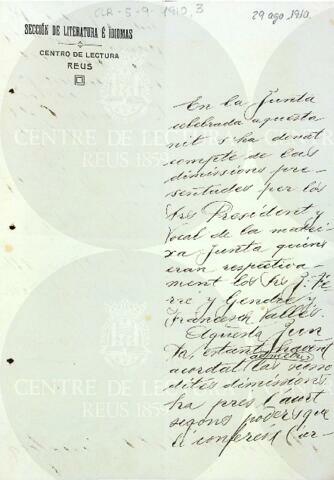 CLR-5-9-1910, 3
29 ago, 1910.
SECCIÓN DE LITERATURA É IDIOMAS
CENTRO DE LECTURA
REUS
En la Junta
celebrada aquesta
nit s'ha donat
compte de las
dimissions pre-
sentades per los
Srs President y
Vocal de la matei-
xa Junta quins
eran respectiva-
ment los Srs J. Fe-
rré y Gendre y
Francesch Vallés.
Aquesta Jun
ta, estant havent
admetre
acordat las
dites dimissions
ha pres l'acort
segons poders que
li confereix l'ar-
CENTRE DE LECTURA
REUS 1859
CENTRE DE LECTURA
REUS 1859